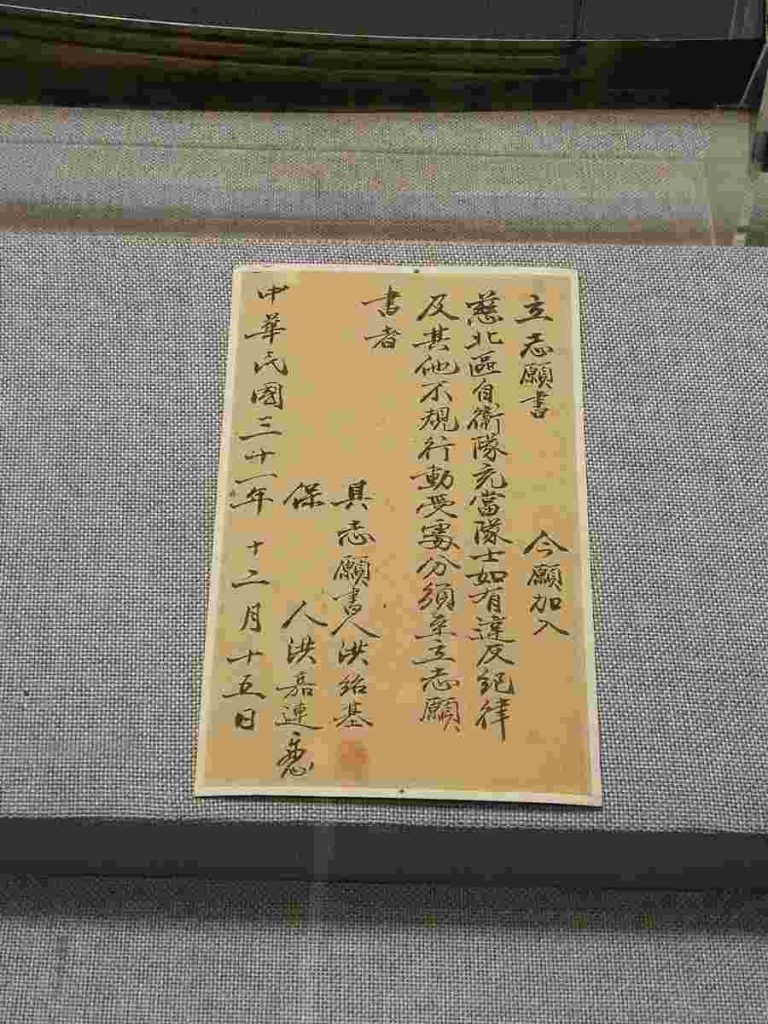 立志願書　今願加入
慈北區自衛隊充當隊士如有違反紀律
及其他不規行動受處分須至立志願
書者
具志願書人洪紹基
保　人洪嘉連
中華民國三十一年十二月十五日